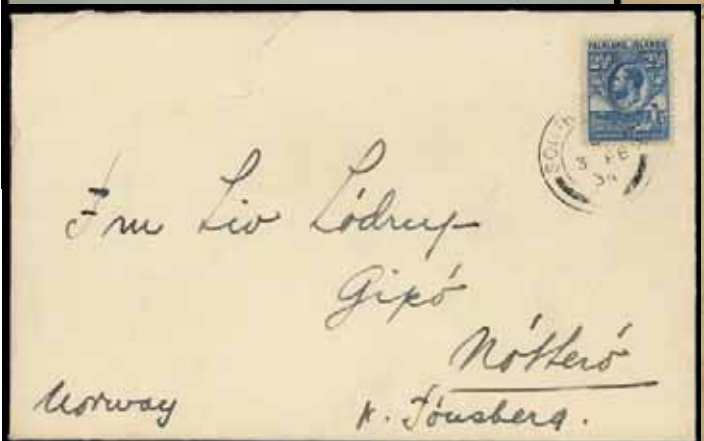 FALKLAND ISLANDS
2½ 2½
SOUTH
3 FE
34
Fru Liv Lódrup
Gipó
Nótteró
Norway
p. Tónsberg.